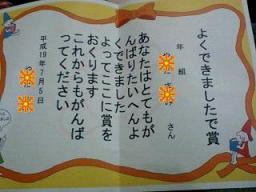 よくできましたで賞
年 組
さん
あなたはとてもが
んばりたいへんよ
くできました
よってここに賞を
おくります
これからもがんば
ってください
平成19年7月5日